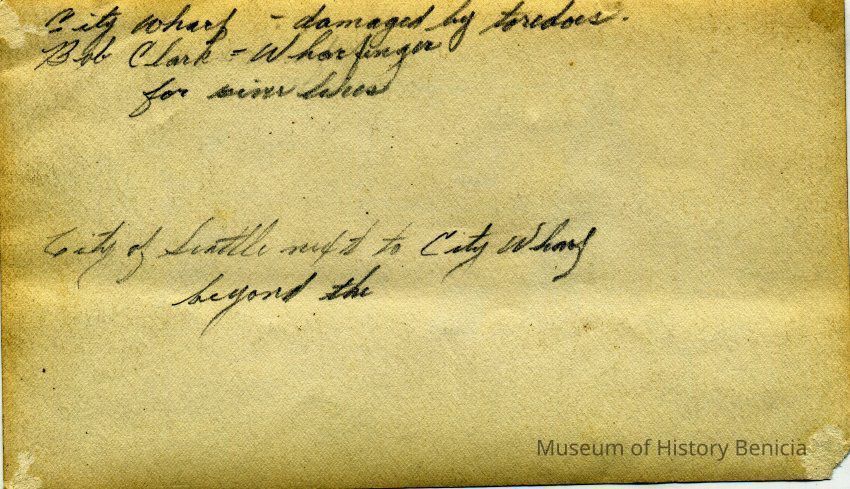 City Wharf - damaged by toredoes.
Bob Clark = Wharfinger
for river lines
City of Seattle next to City Wharf
beyond the
Museum of History Benicia